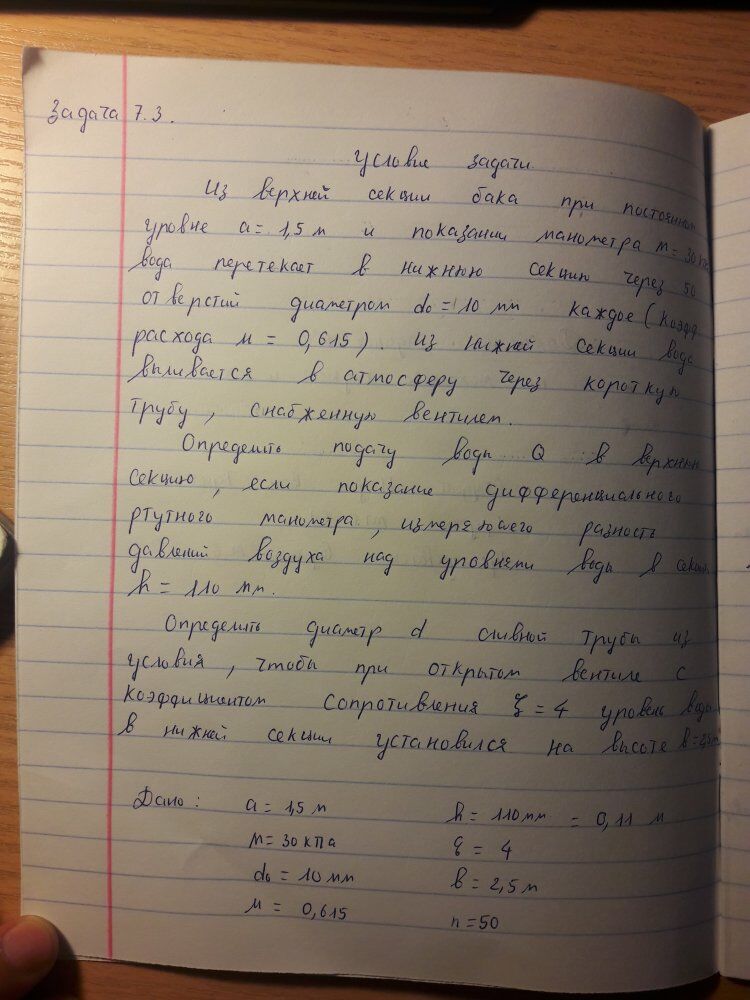 Задача 7.3.
Условие задачи.
Из верхней секции бака при постоянном
уровне a = 1,5 м и показании манометра м = 30 кПа
вода перетекает в нижнюю секцию через 50
отверстий диаметром d₀ = 10 мм каждое (коэфф.
расхода м = 0,615). Из нижней секции вода
выливается в атмосферу через короткую
трубу, снабженную вентилем.
Определить подачу воды Q в верхнюю
секцию, если показание дифференциального
ртутного манометра, измеряющего разность
давлений воздуха над уровнями воды в секц
h = 110 мм.
Определить диаметр d сливной трубы из
условия, чтобы при открытом вентиле с
коэффициентом сопротивления ξ = 4 уровень воды
в нижней секции установился на высоте b = 2,5 м
Дано: a = 1,5 м h = 110 мм = 0,11 м
м = 30 кПа ξ = 4
d₀ = 10 мм b = 2,5 м
м = 0,615 n = 50